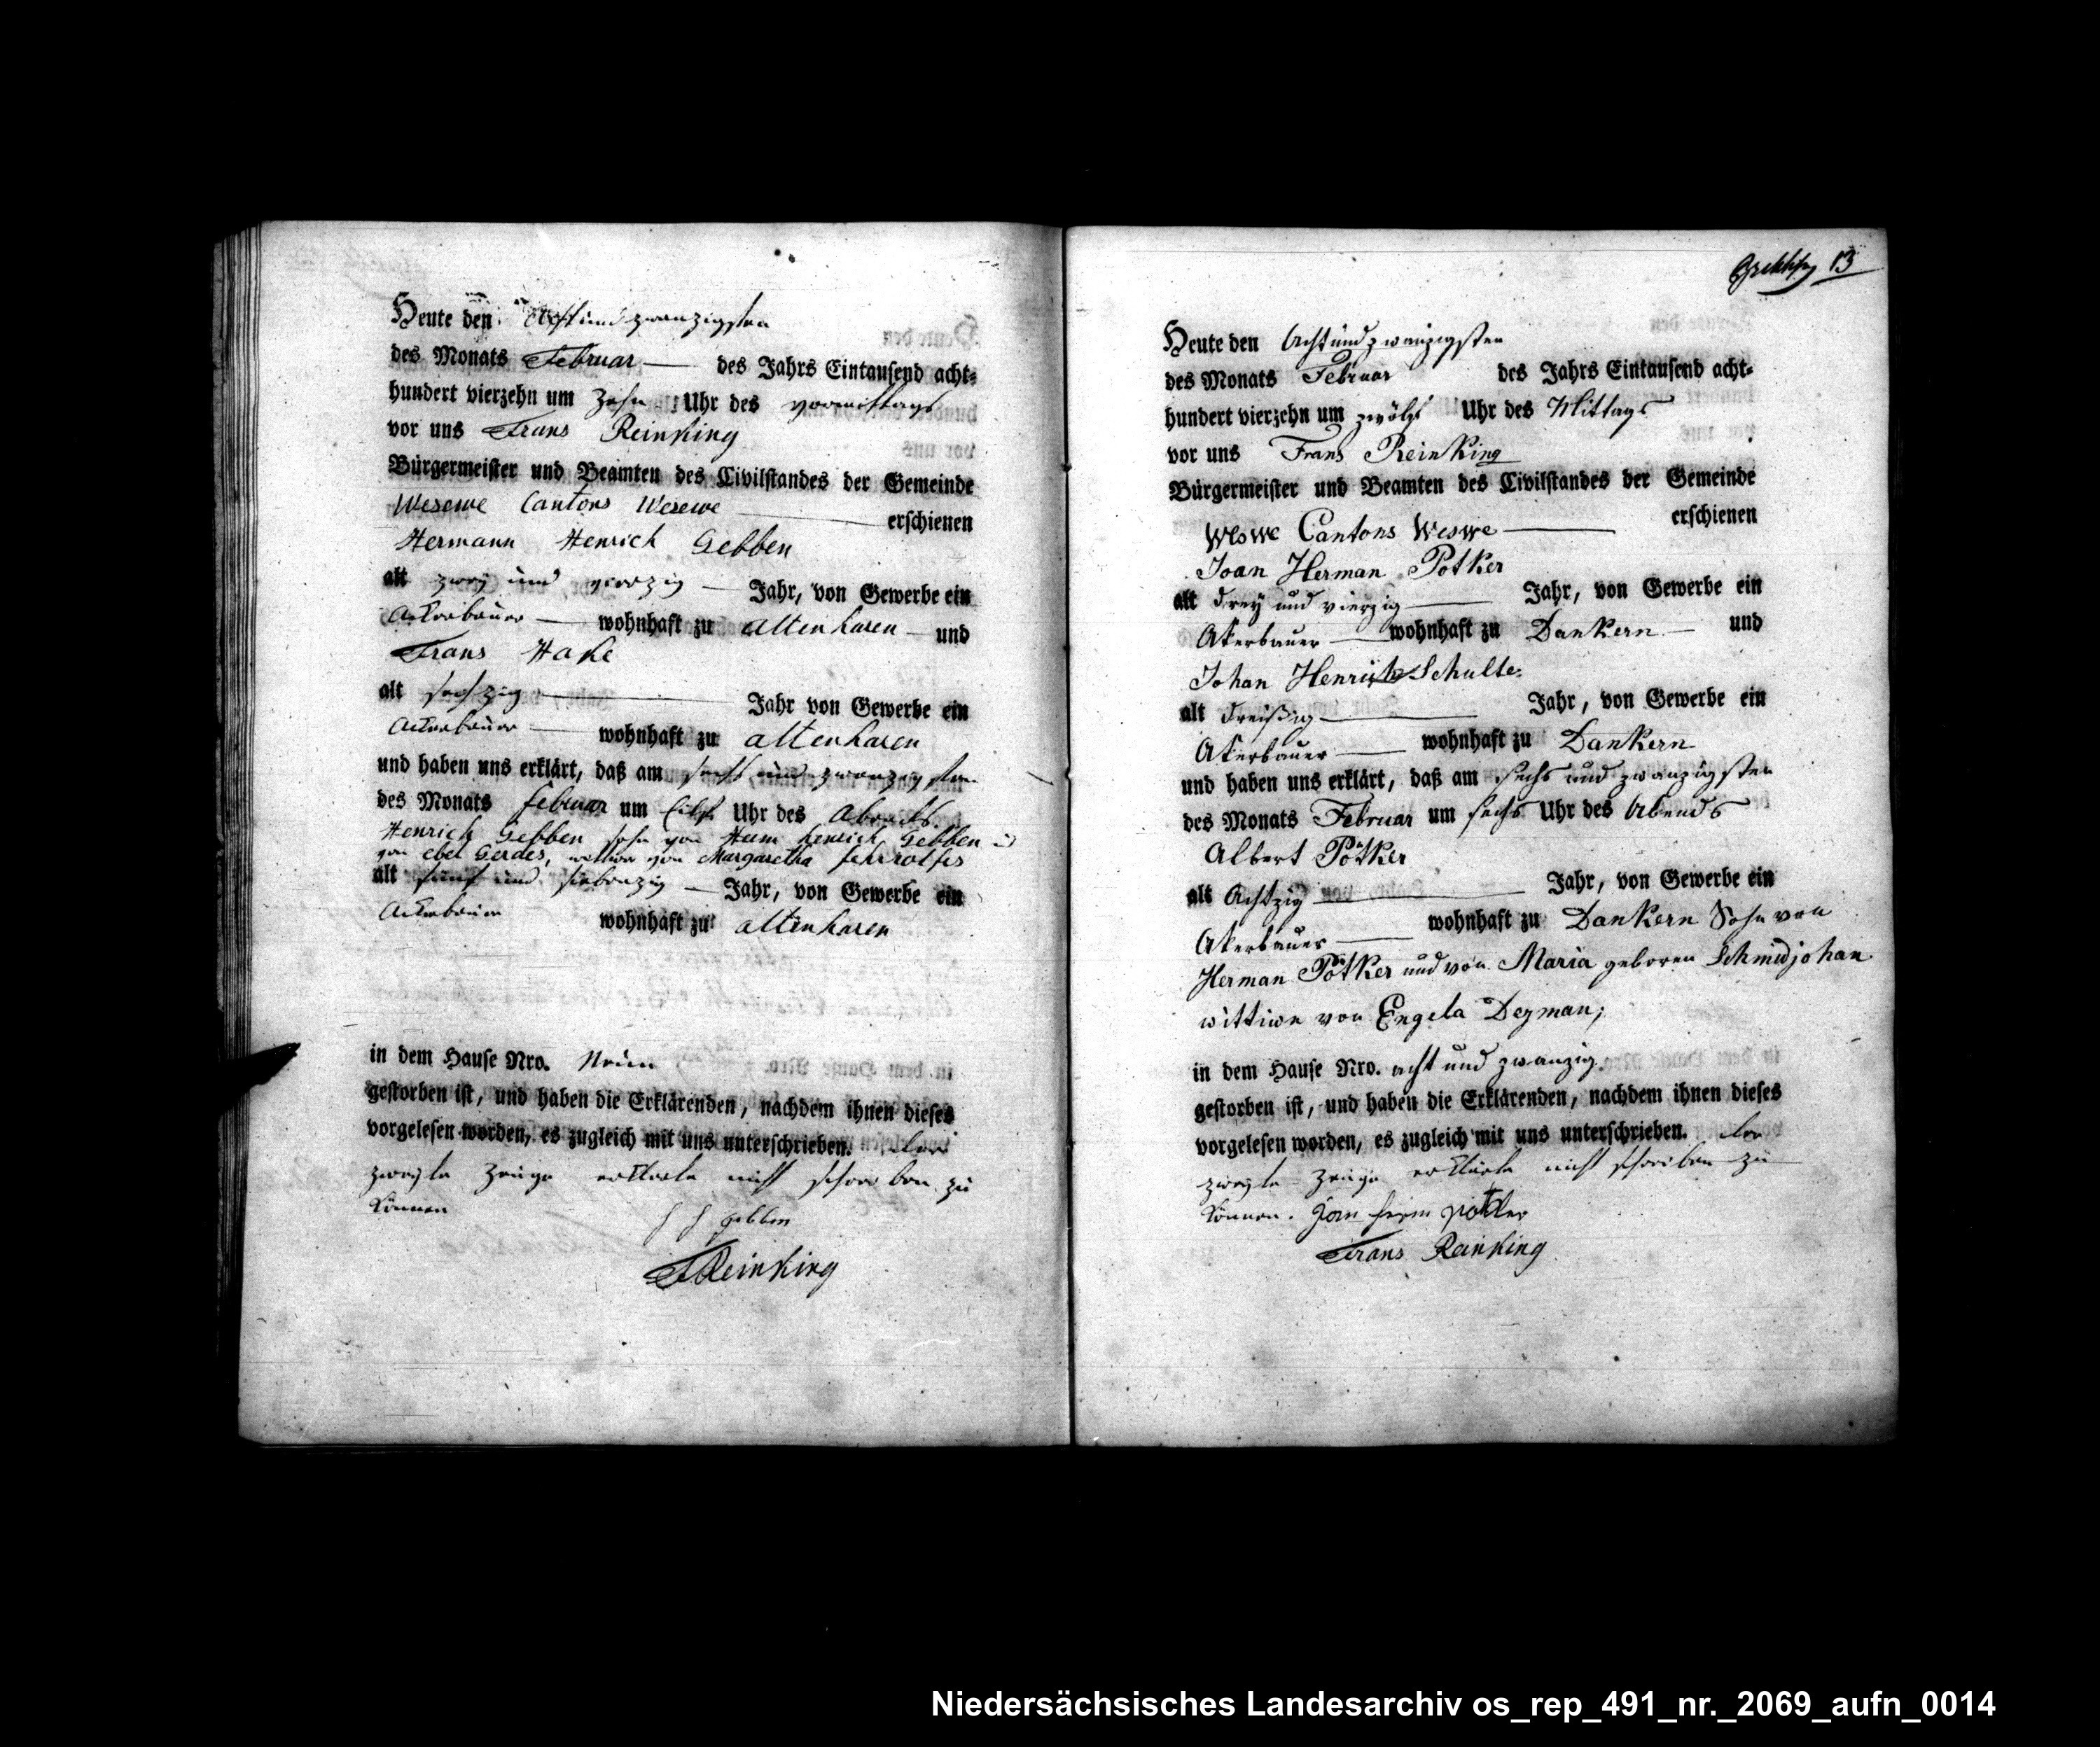 Heute den Achtundzwanzigsten
des Monats Februar — des Jahrs Eintausend acht-
hundert vierzehn um Zehn Uhr des vormittags
vor uns Frans Reinking
Bürgermeister und Beamten des Civilstandes der Gemeinde
Wesewe Cantons Wesewe — erschienen
Hermann Henrich Gebben
alt zwey und vierzig — Jahr, von Gewerbe ein
Ackerbauer — wohnhaft zu altenharen — und
Frans Hake
alt sechzig — Jahr von Gewerbe ein
Ackerbauer — wohnhaft zu altenharen
und haben uns erklärt, daß am sechs und zwanzigsten
des Monats februar um Eilf Uhr des Abends
Henrich Gebben sohn von Herm henrich Gebben
von ebel Gerdes, wittwer von Margaretha
alt fünf und siebenzig — Jahr, von Gewerbe ein
Ackerbauer wohnhaft zu altenharen
in dem Hause Nro. Neün
gestorben ist, und haben die Erklärenden, nachdem ihnen dieses
vorgelesen worden, es zugleich mit uns unterschrieben. der
zweyte Zeuge erklarte nicht schreiben zü
können
gebben
FReinking
13
Heute den Achtündzwanzigsten
des Monats Februar des Jahrs Eintausend acht-
hundert vierzehn um zwölf Uhr des Mittags
vor uns Frans Reinking
Bürgermeister und Beamten des Civilstandes der Gemeinde
Weswe Cantons Weswe — erschienen
Joan Herman Pötker
alt drey und vierzig — Jahr, von Gewerbe ein
Akerbauer — wohnhaft zu Dankern — und
Johan Henrich Schulte
alt dreißig — Jahr, von Gewerbe ein
Akerbauer — wohnhaft zu Dankern
und haben uns erklärt, daß am sechs und zwanzigsten
des Monats Februar um sechs Uhr des Abends
Albert Pötker
alt Achtzig — Jahr, von Gewerbe ein
Akerbauer — wohnhaft zu Dankern Sohn von
Herman Pötker und von Maria geboren Schmidjohan
wittiwe von Engela Deyman;
in dem Hause Nro. acht und zwanzig
gestorben ist, und haben die Erklärenden, nachdem ihnen dieses
vorgelesen worden, es zugleich mit uns unterschrieben. der
zweyte Zeuge erklärte nicht schreiben zü
können. Joan herm pötker
Frans Reinking
Niedersächsisches Landesarchiv os_rep_491_nr._2069_aufn_0014